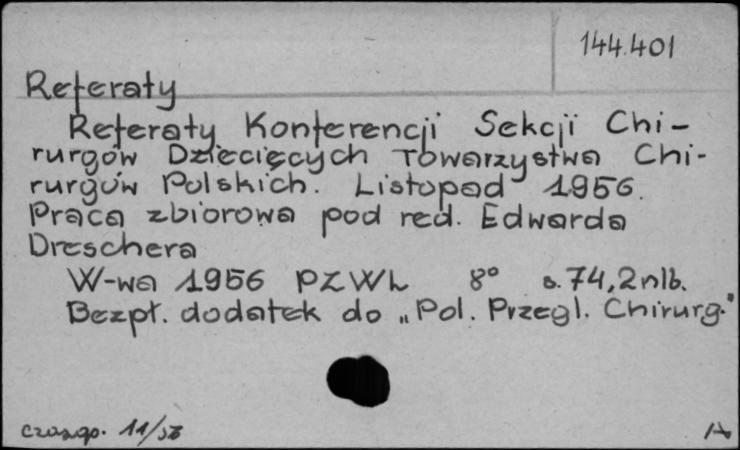 144.401
Referaty
Referaty Konferencji Sekcji Chi-
rurgów Dziecięcych Towarzystwa Chi-
rurgów Polskich. Listopad 1956.
Praca zbiorowa pod red. Edwarda
Dreschera
W-wa 1956 PZWL 8° s. 74, 2nlb.
Bezpł. dodatek do „Pol. Przegl. Chirurg."
czasop. 11/58
A